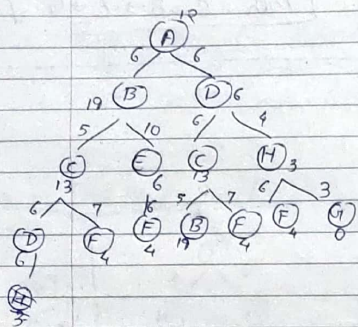 12
A
6 6
19 B D 6
5 10 6 4
C E C H 3
13 6 13
6 7 6 5 7 6 3
D F F B F F G
4 4 19 4 4 0
6
H
3